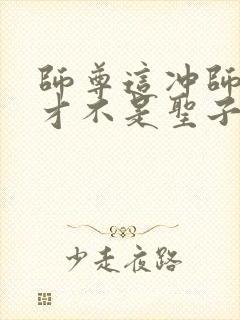 師尊這冲師
才不是聖子
少走夜路